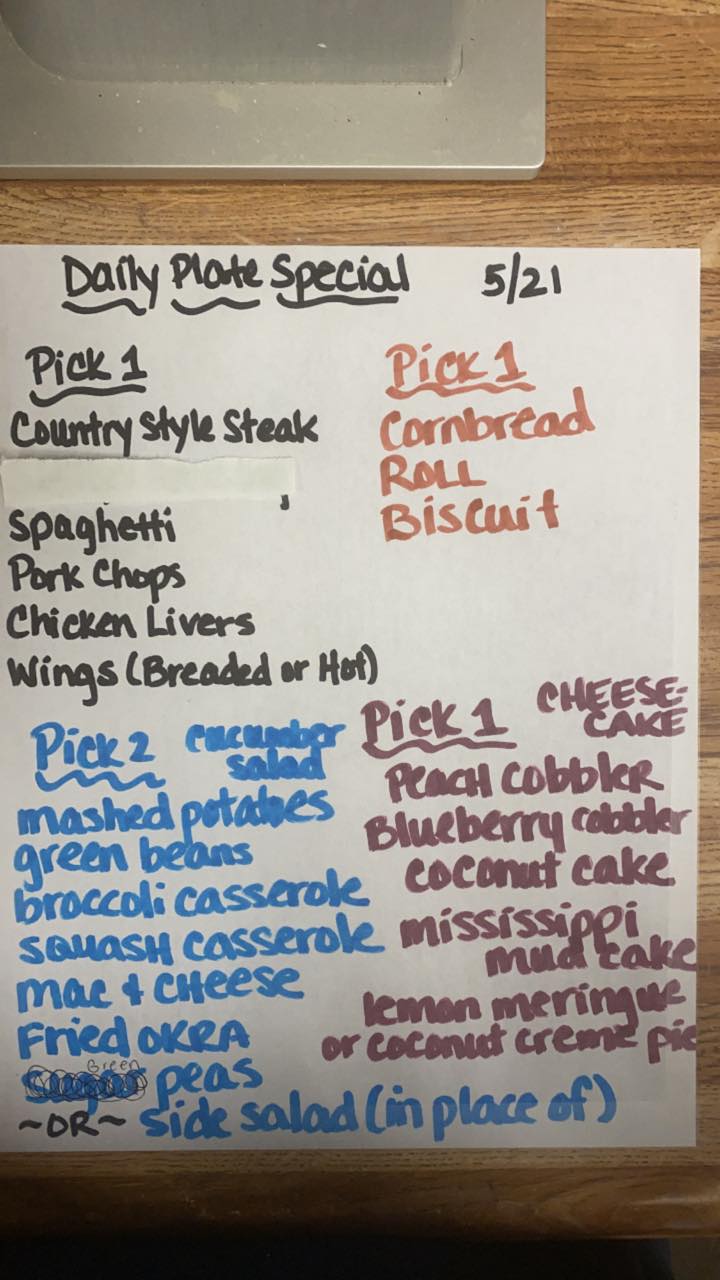 Daily Plate Special 5/21
Pick 1
Country Style Steak
Spaghetti
Pork Chops
Chicken Livers
Wings (Breaded or Hot)
Pick 1
Cornbread
ROLL
Biscuit
Pick 2
cucumber
salad
mashed potatoes
green beans
broccoli casserole
squash casserole
mac & cheese
Fried OKRA
Green peas
~OR~ side salad (in place of)
Pick 1
CHEESE-
CAKE
PEACH cobbler
Blueberry cobbler
coconut cake
mississippi
mud cake
lemon meringue
or coconut creme pie